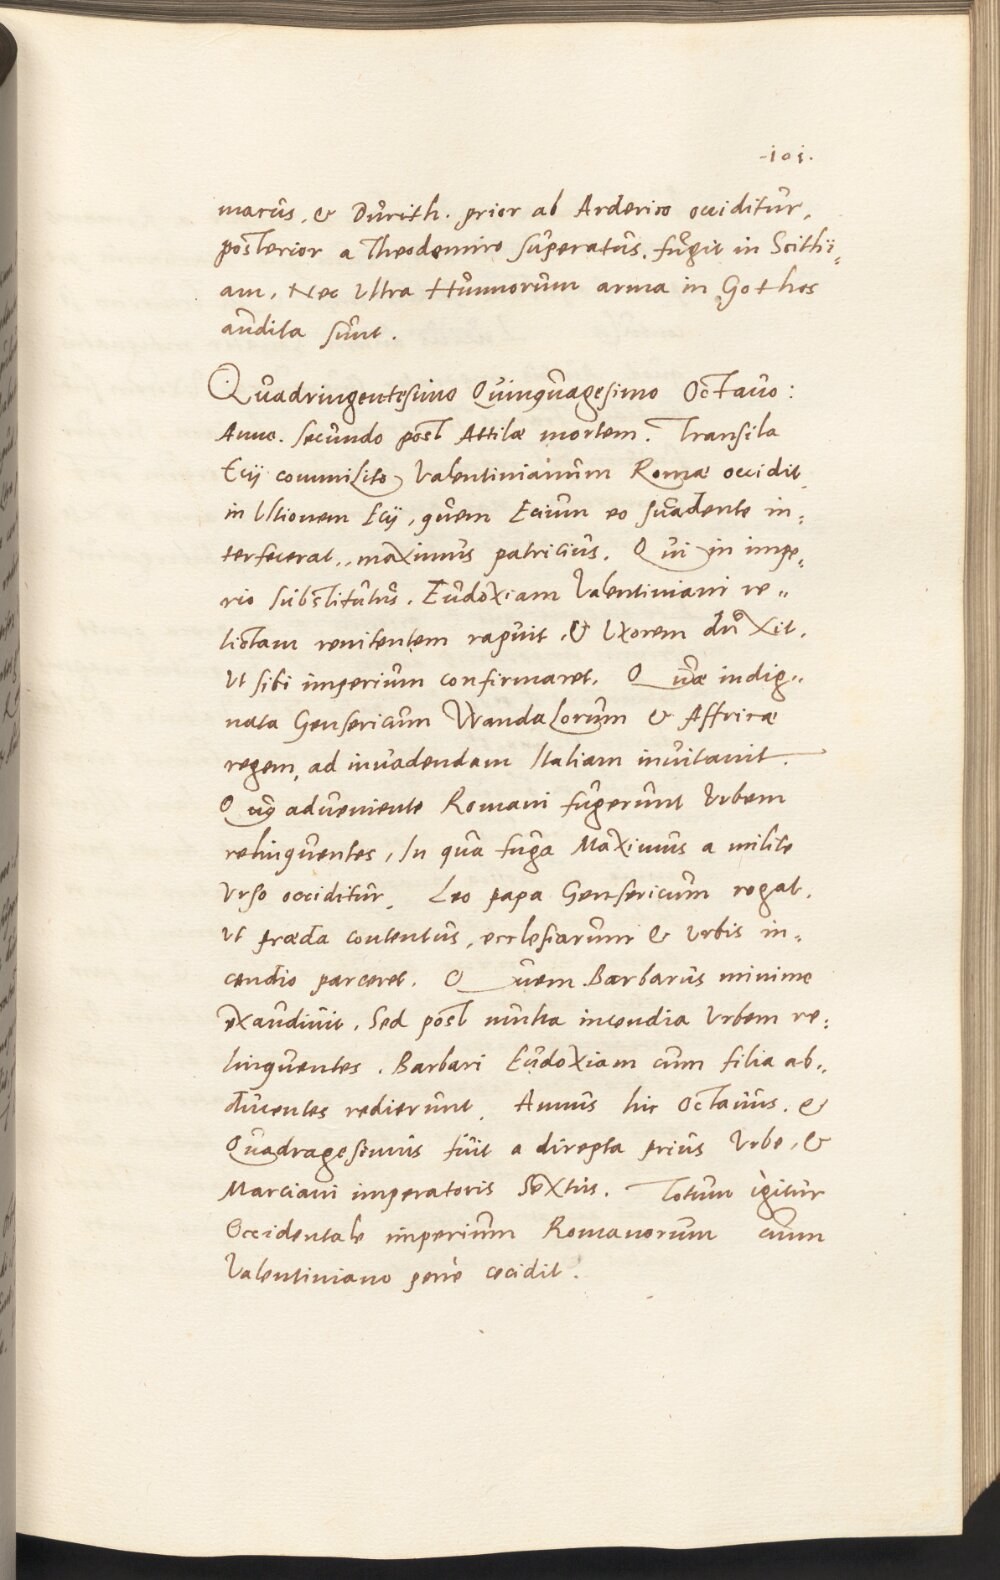 -101.
marus, & Durith. prior ab Arderico occiditur,
posterior a Theodemiro superatus, fugit in Scithi=
am, Nec Ultra Hunnorum arma in Gothos
audita sunt.
Quadringentesimo Quinquagesimo Octavo:
Anno. secundo post Attilæ mortem. Transila
Ecij commilito, Valentinianum Romæ occidit
in Ultionem Ecij, quem Ecium eo suadente in=
terfecerat, maximus patricius. Qui in impe=
rio substitutus. Eudoxiam Valentiniani re=
lictam renitentem rapuit, & Uxorem duxit,
Ut sibi imperium confirmaret. Quæ indig=
nata Gensericum Wandalorum & Affricæ
regem, ad invadendam Italiam invitavit.
Quo adveniente Romani fugerunt Urbem
relinquentes, In qua fuga Maximus a milite
Urso occiditur, Leo papa Gensericum rogat,
Ut præda contentus, ecclesiarum & Urbis in=
cendio parceret. Quem Barbarus minime
exaudivit, Sed post multa incendia Urbem re=
linquentes. Barbari Eudoxiam cum filia ab=
ducentes redierunt, Annus hic Octavus, &
Quadragesimus fuit a direpta prius Urbe, &
Marciani imperatoris Sextus. Totum igitur
Occidentale imperium Romanorum cum
Valentiniano penè cecidit.